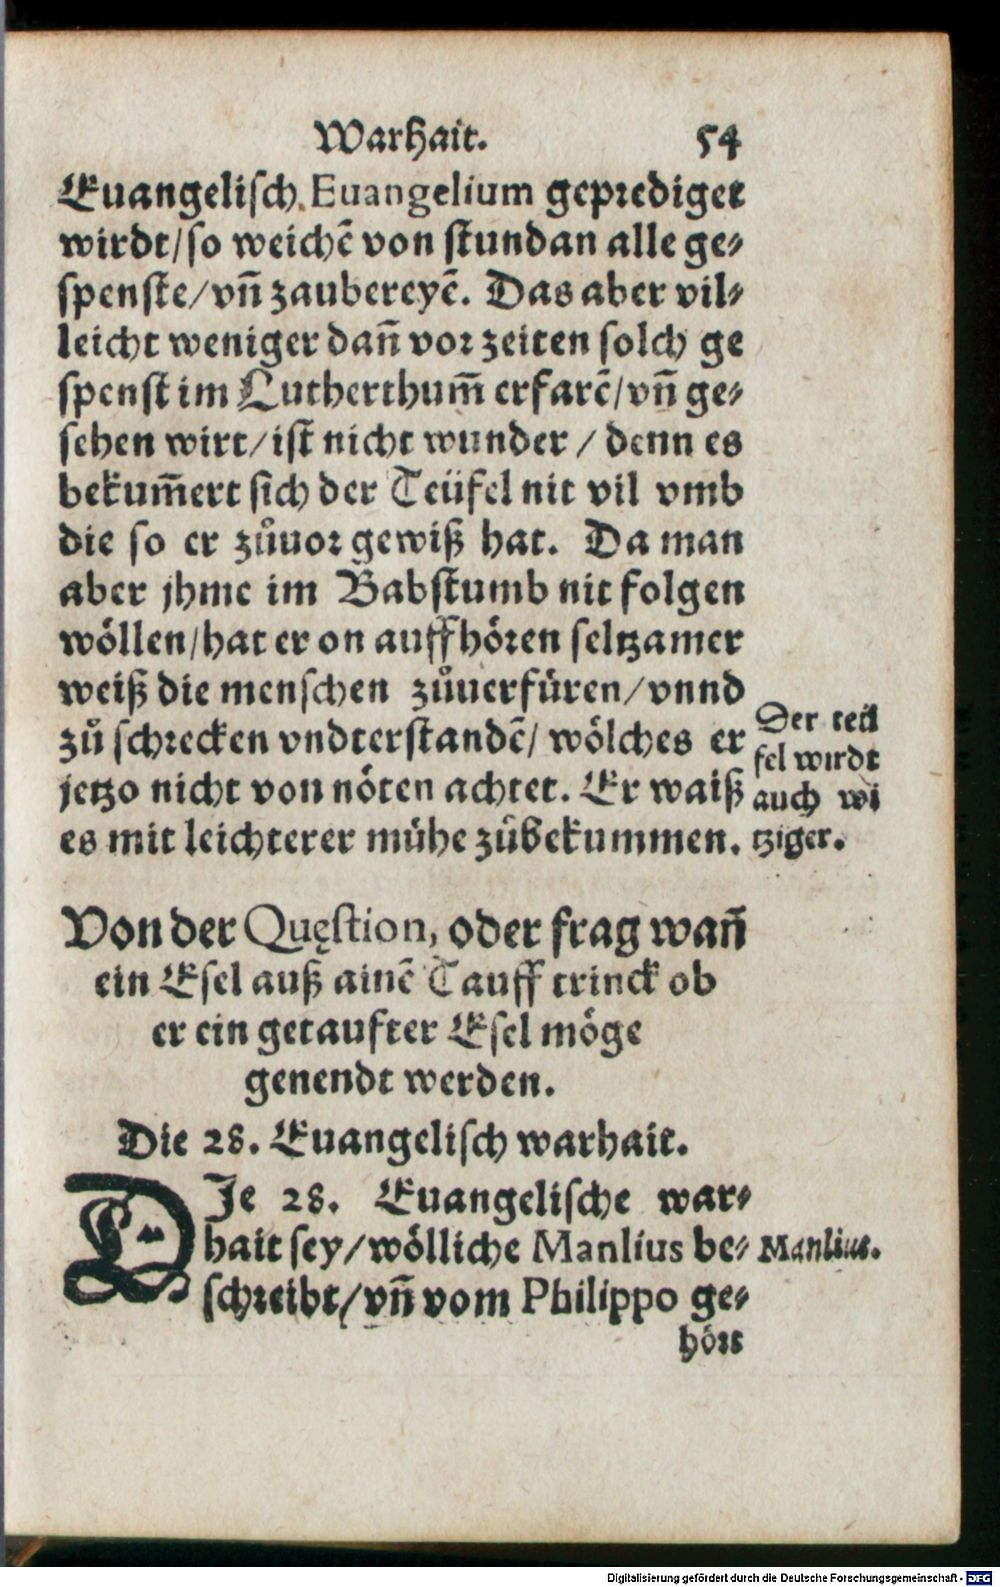 Warhait. 54
Euangelisch Euangelium geprediget
wirdt/so weichẽ von stundan alle ge⸗
spenste/vñ zaubereyẽ. Das aber vil⸗
leicht weniger dañ vor zeiten solch ge
spenst im Lutherthum̃ erfarẽ/vñ ge⸗
sehen wirt/ist nicht wunder / denn es
bekum̃ert sich der Teüfel nit vil vmb
die so er zůuor gewiß hat. Da man
aber jhme im Babstumb nit folgen
wöllen/hat er on auffhören seltzamer
weiß die menschen zůuerfüren/vnnd
zů schrecken vndterstandẽ/ wölches er
jetzo nicht von nöten achtet. Er waiß
es mit leichterer mühe zůbekummen.
Der teü
fel wirdt
auch wi
tziger.
Von der Quęstion, oder frag wañ
ein Esel auß ainẽ Tauff trinck ob
er ein getaufter Esel möge
genendt werden.
Die 28. Euangelisch warhait.
DIe 28. Euangelische war⸗
hait sey/wölliche Manlius be⸗
schreibt/vñ vom Philippo ge⸗
Manlius.
hört
Digitalisierung gefördert durch die Deutsche Forschungsgemeinschaft - DFG